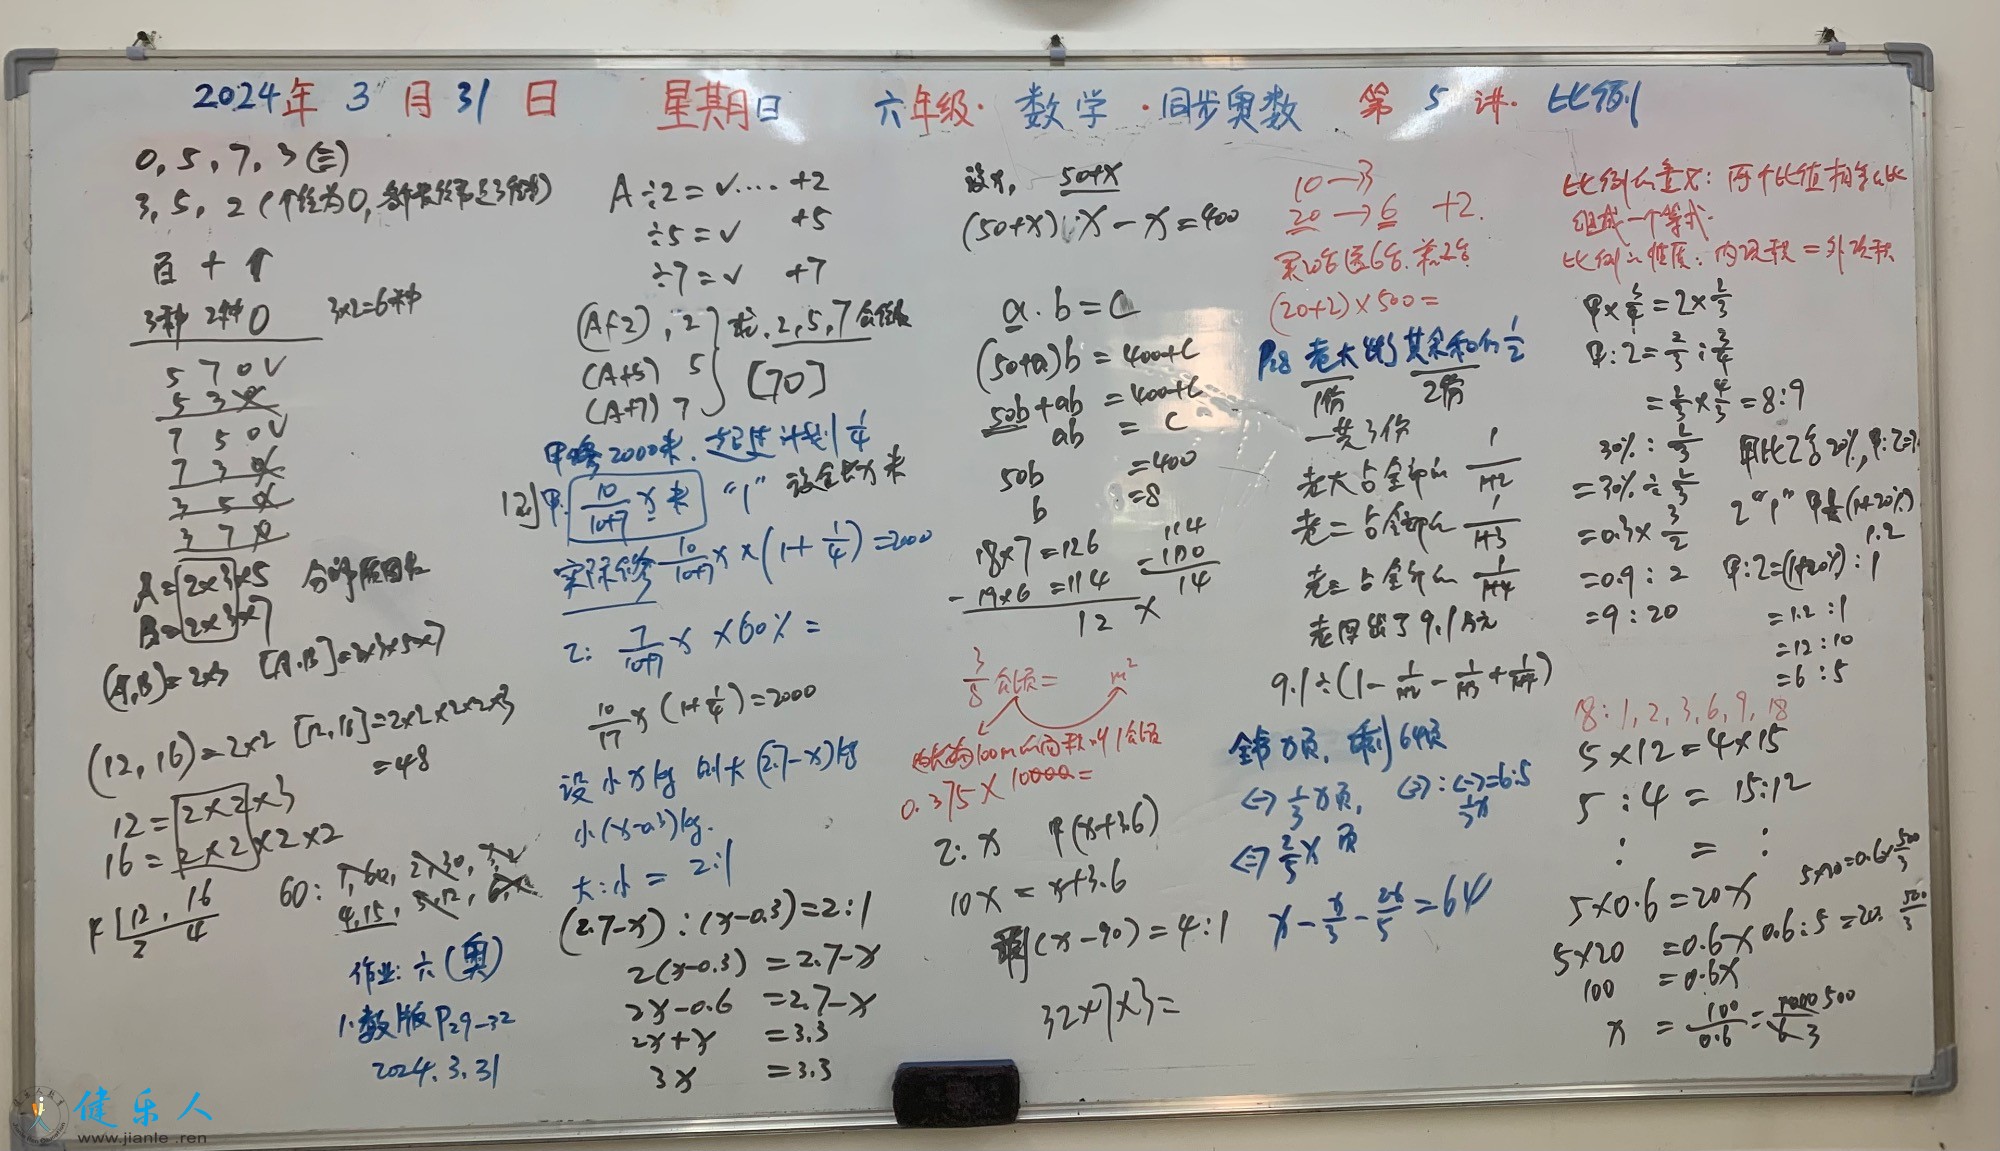 2024年 3 月 31 日 星期日 六年级·数学·同步奥数 第 5 讲·比例
0, 5, 7, 3 (三)
3, 5, 2 (个位为0,
百 十 个
3种 2种 0 3×2=6种
5 7 0 √
5 3 0
7 5 0 √
7 3 0
3 5 0
3 7 0
A=2×3×5 分解质因数
B=2×3×7
(A,B)=2×3 [A,B]=2×3×5×7
(12,16)=2×2 [12,16]=2×2×2×2×3
=48
12=2×2×3
16=2×2×2×2
4 12, 16
2 4
60: 1,60, 2,30, 3,
4,15, 5,12, 6,
作业: 六(奥)
1.数版P29-32
2024.3.31
A÷2=√.... +2
÷5=√ +5
÷7=√ +7
(A+2), 2
(A+5) 5
(A+7) 7
2,5,7
[70]
甲修2000米, 计划 1/4
甲: 10/(10+7) x 米 "1" 设全长x米
实际修 10/(10+7) x×(1+1/4)=2000
乙: 7/(10+7) x×60%=
10/17 x(1+1/4)=2000
设小x kg 则大(2.7-x)kg
小(x-0.3)kg.
大:小=2:1
(2.7-x):(x-0.3)=2:1
2(x-0.3)=2.7-x
2x-0.6=2.7-x
2x+x=3.3
3x=3.3
设x, 50+x
(50+x)·x-x=400
a·b=C
(50+a)b=400+C
50b+ab=400+C
ab=C
50b=400
b=8
18×7=126
-19×6=114
12 ×
114
-100
14
3/8 公顷= m²
100m 面积 1公顷
0.375×10000=
乙: x 甲(x+3.6)
10x=x+3.6
(x-90)=4:1
32×7×3=
10→3
20→6 +2.
买20台送6台.
(20+2)×500=
P28 老大 其余和的1/2
1份 2份
一共3份
老大占全部的 1/(1+2)
老二占全部的 1/(1+3)
老三占全部的 1/(1+4)
老四出了9.1万元
9.1÷(1-1/(1+2)-1/(1+3)+1/(1+4))
全书x页, 剩64页
<一> 1/3 x页, <二>:<一>=6:5
1/3 x
<二> 2/5 x 页
x-x/3-2x/5=64
比例的意义: 两个比值相等的比
组成一个等式.
比例的性质: 内项积=外项积
甲×3/4=乙×2/3
甲:乙=2/3:3/4
=2/3×4/3=8:9
30%:2/3
=30%÷2/3
=0.3×3/2
=0.9:2
=9:20
甲比乙多20%, 甲:乙=?
乙"1" 甲是(1+20%)
1.2
甲:乙=(1+20%):1
=1.2:1
=12:10
=6:5
18:1,2,3,6,9,18
5×12=4×15
5:4=15:12
: = :
5×0.6=20x
5×20=0.6x
100=0.6x
x=100/0.6=1000/6 500/3
5×20=0.6×500/3
0.6:5=20:500/3